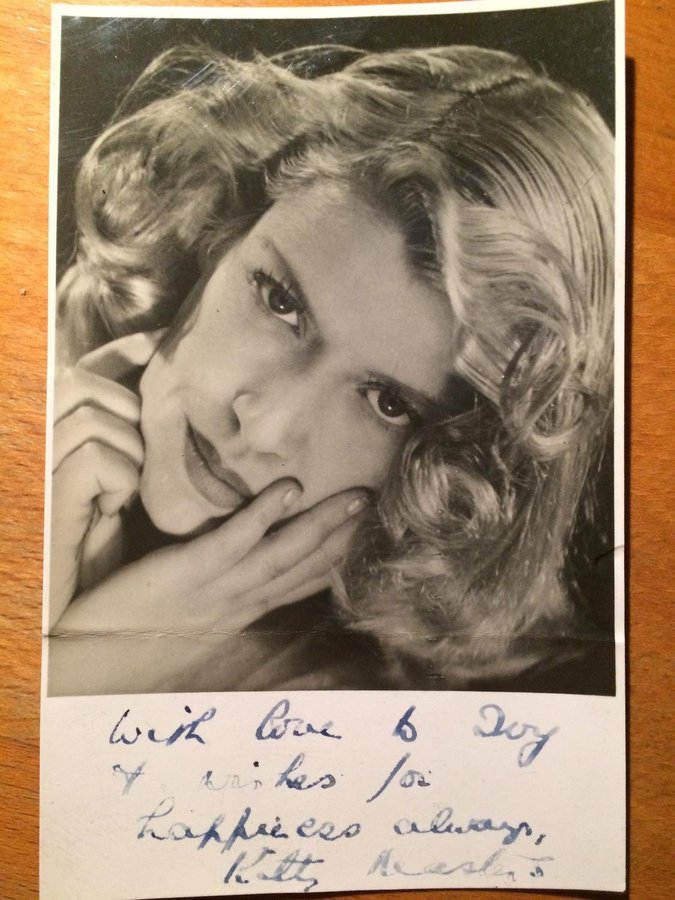 With love to Ivy
& wishes for
happiness always,
Kitty